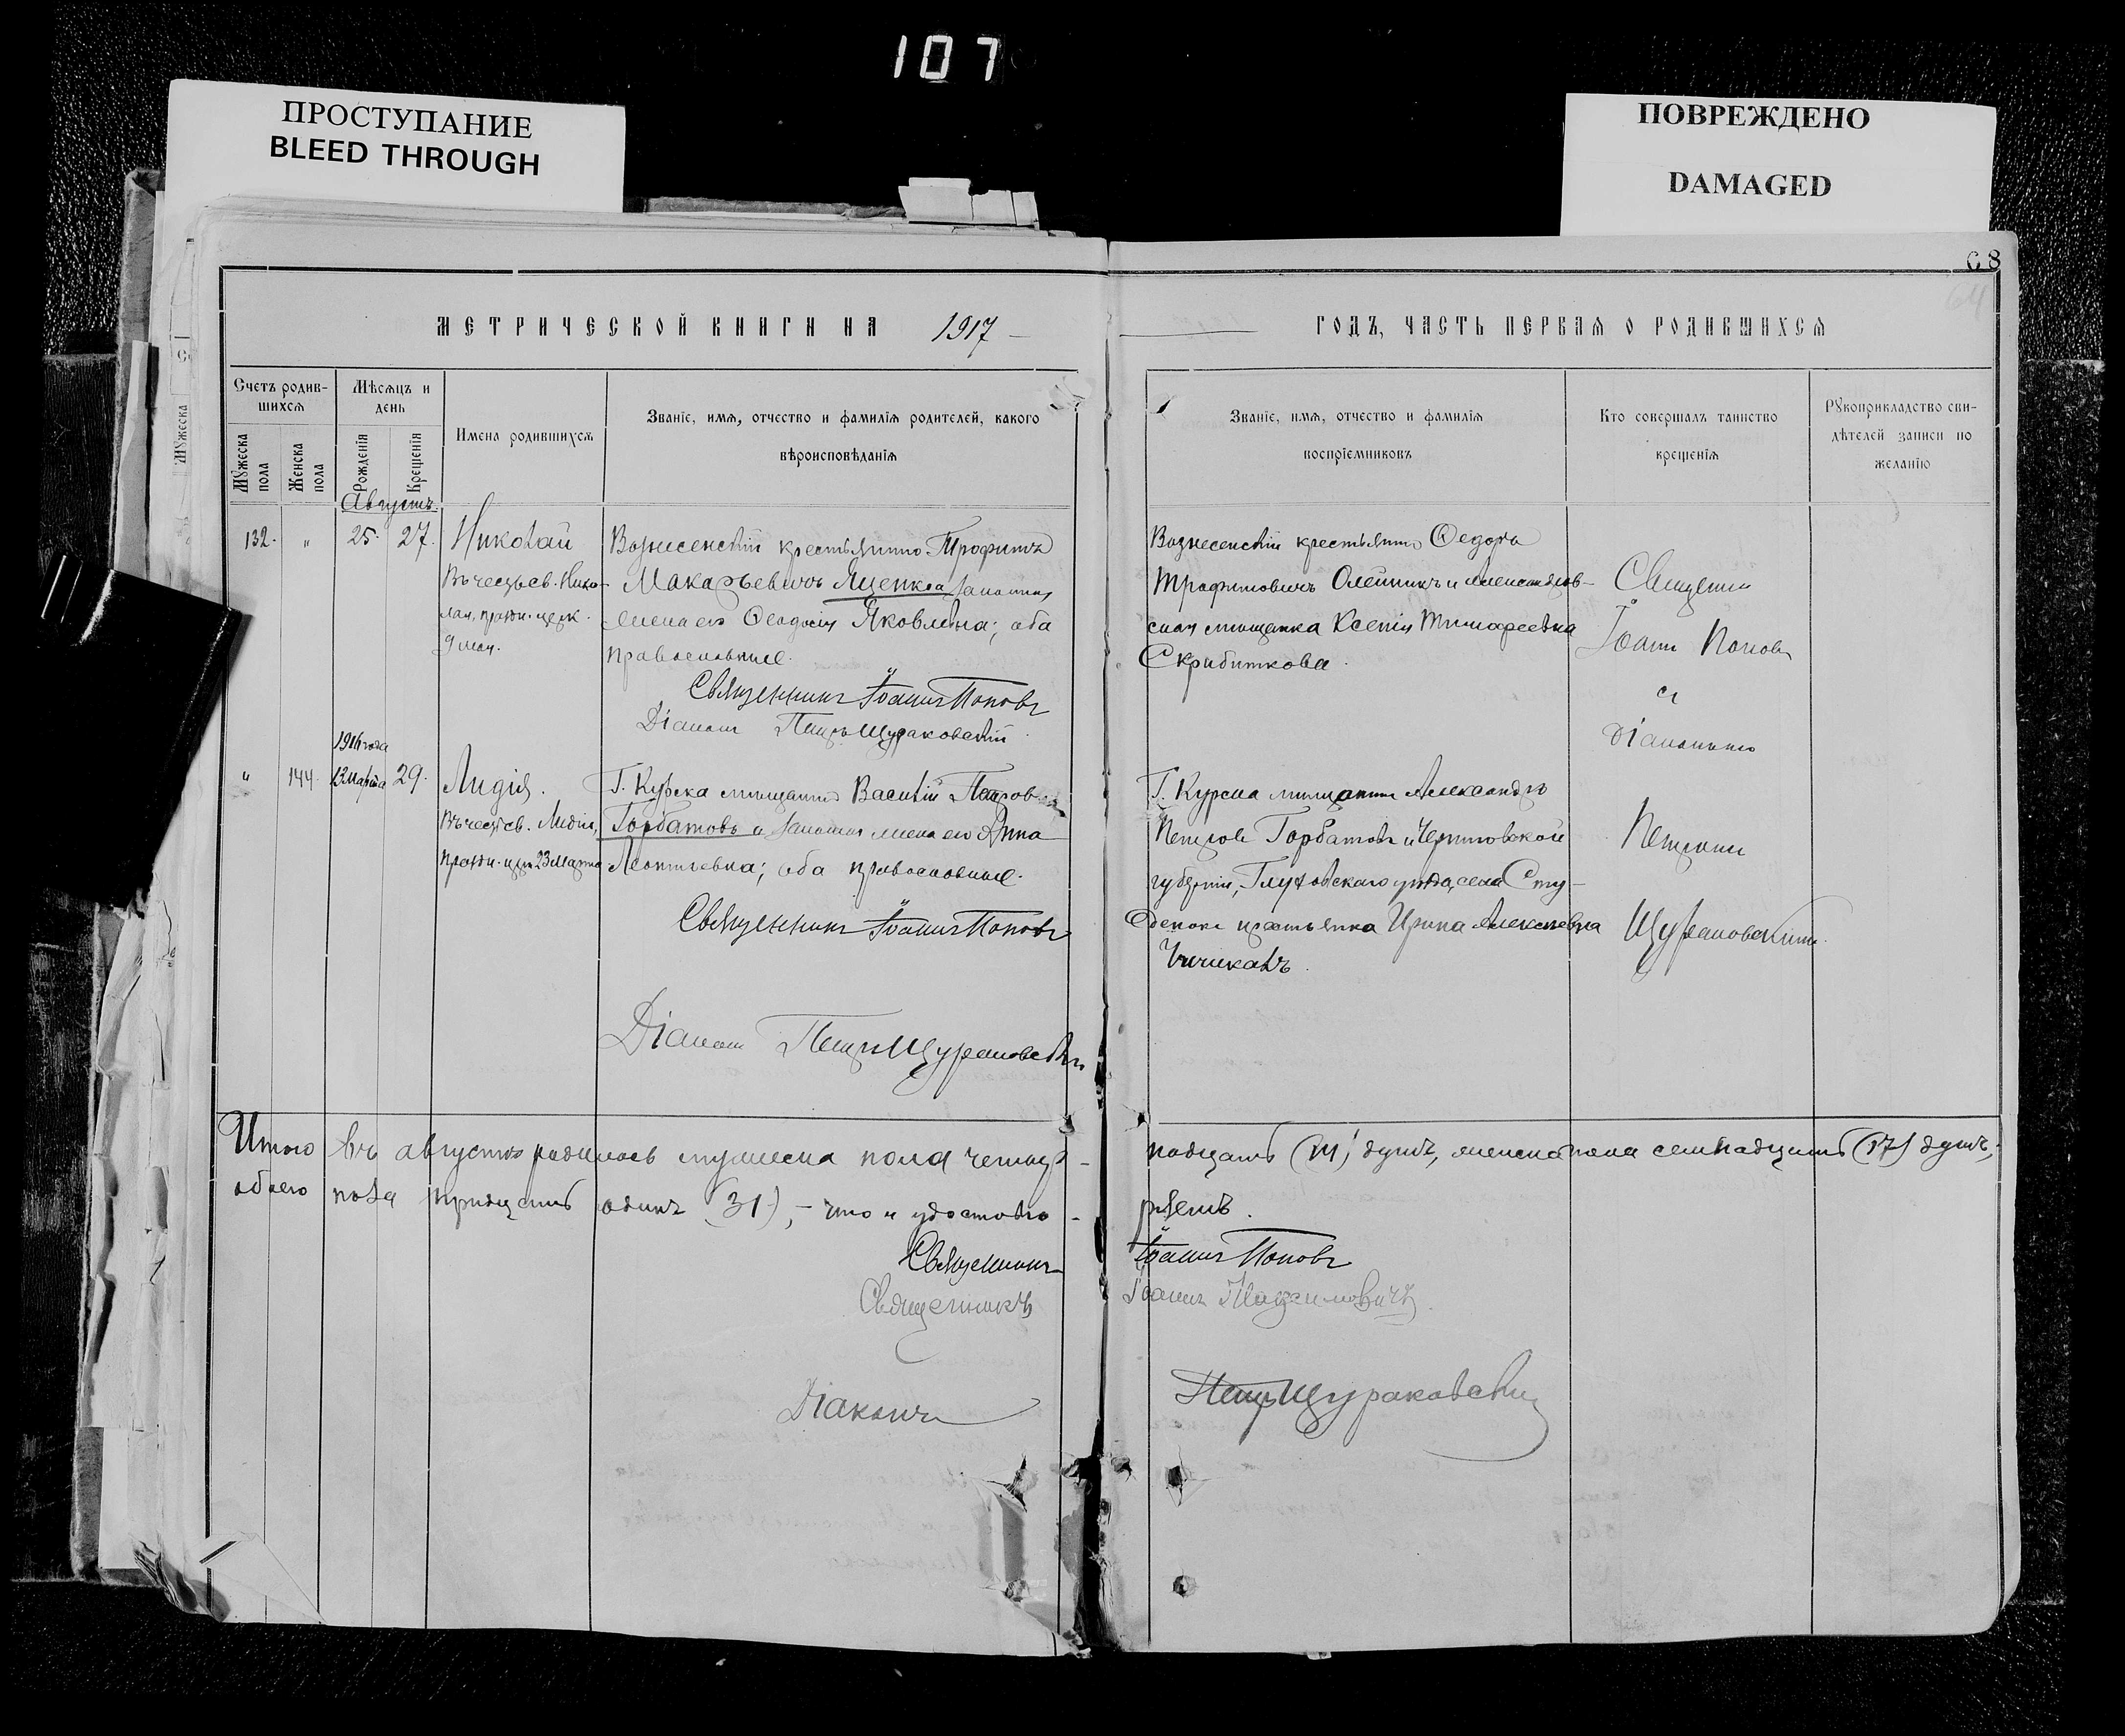 107
ПРОСТУПАНИЕ
BLEED THROUGH
ПОВРЕЖДЕНО
DAMAGED
68
МЕТРИЧЕСКОЙ КНИГИ НА 1917
ГОДЪ, ЧАСТЬ ПЕРВАЯ О РОДИВШИХСЯ
Счетъ родив-
шихся
Мѣсяцъ и
день
Имена родившихся
Званіе, имя, отчество и фамилія родителей, какого
вѣроисповѣданія
Мужеска
пола
Женска
пола
Рожденія
Крещенія
Званіе, имя, отчество и фамилія
воспріемниковъ
Кто совершалъ таинство
крещенія
Рукоприкладство сви-
дѣтелей записи по
желанію
Августъ.
132. " 25. 27. Николай
Въ честь св. Нико-
лая, празд. церк.
9 мая.
Вознесенскій крестьянинъ Трофимъ
Макарьевичъ Яценко и законная
жена его Ѳеодосія Яковлевна; оба
православные.
Священникъ Іоаннъ Поповъ
Діаконъ Петръ Щураковскій
Вознесенскій крестьянинъ Ѳедоръ
Трофимовичъ Олейникъ и Александров-
ская мѣщанка Ксенія Тимофеевна
Скрибиткова.
Священникъ
Іоаннъ Поповъ
съ
діакономъ
1916 года
" 144. 13 Марта 29. Лидія.
Въ честь св. Лидіи,
празд. церк. 23 Марта
Г. Курска мѣщанинъ Василій Петровъ
Горбатовъ и законная жена его Анна
Леонтьевна; оба православные.
Священникъ Іоаннъ Поповъ
Діаконъ Петръ Щураковскій
Г. Курска мѣщанинъ Александръ
Петровъ Горбатовъ и Черниговской
губерніи, Глуховскаго уѣзда, села Сту-
денокъ крестьянка Ирина Алексѣевна
Чичикавъ.
Петромъ
Щураковскимъ.
Итого въ августѣ родилось мужеска пола четыр-
надцать (14) душъ, женска пола семнадцать (17) душъ,
обоего пола тридцать одинъ (31), – что и удостовѣ-
ряемъ.
Священникъ Іоаннъ Поповъ
Священникъ Іоаннъ Максимовичъ.
Діаконъ Петръ Щураковскій